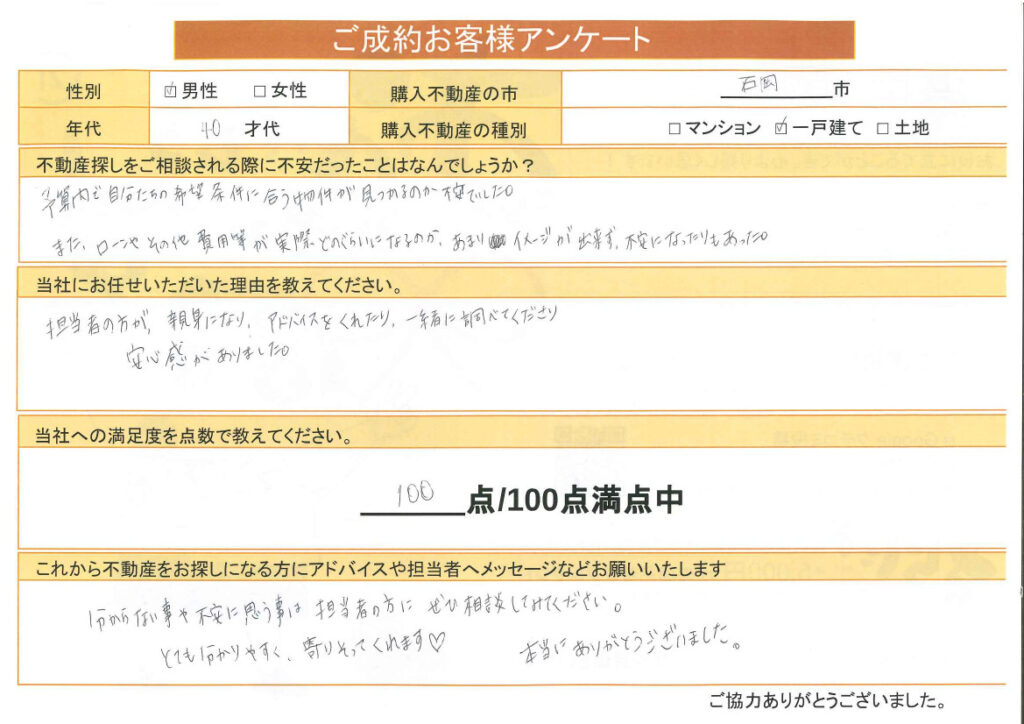 ご成約お客様アンケート
性別 ☑男性 □女性 購入不動産の市 石岡市
年代 40才代 購入不動産の種別 □マンション ☑一戸建て □土地
不動産探しをご相談される際に不安だったことはなんでしょうか？
予算内で自分たちの希望条件に合う物件が見つかるのか不安でした。
また、ローンやその他費用等が実際どのぐらいになるのか、あまりイメージが出来ず、不安になったりもあった。
当社にお任せいただいた理由を教えてください。
担当者の方が、親身になり、アドバイスをくれたり、一緒に調べてくださり
安心感がありました。
当社への満足度を点数で教えてください。
100点/100点満点中
これから不動産をお探しになる方にアドバイスや担当者へメッセージなどお願いいたします
分からない事や不安に思う事は担当者の方にぜひ相談してみてください。
とても分かりやすく、寄りそってくれます♡ 本当にありがとうございました。
ご協力ありがとうございました。